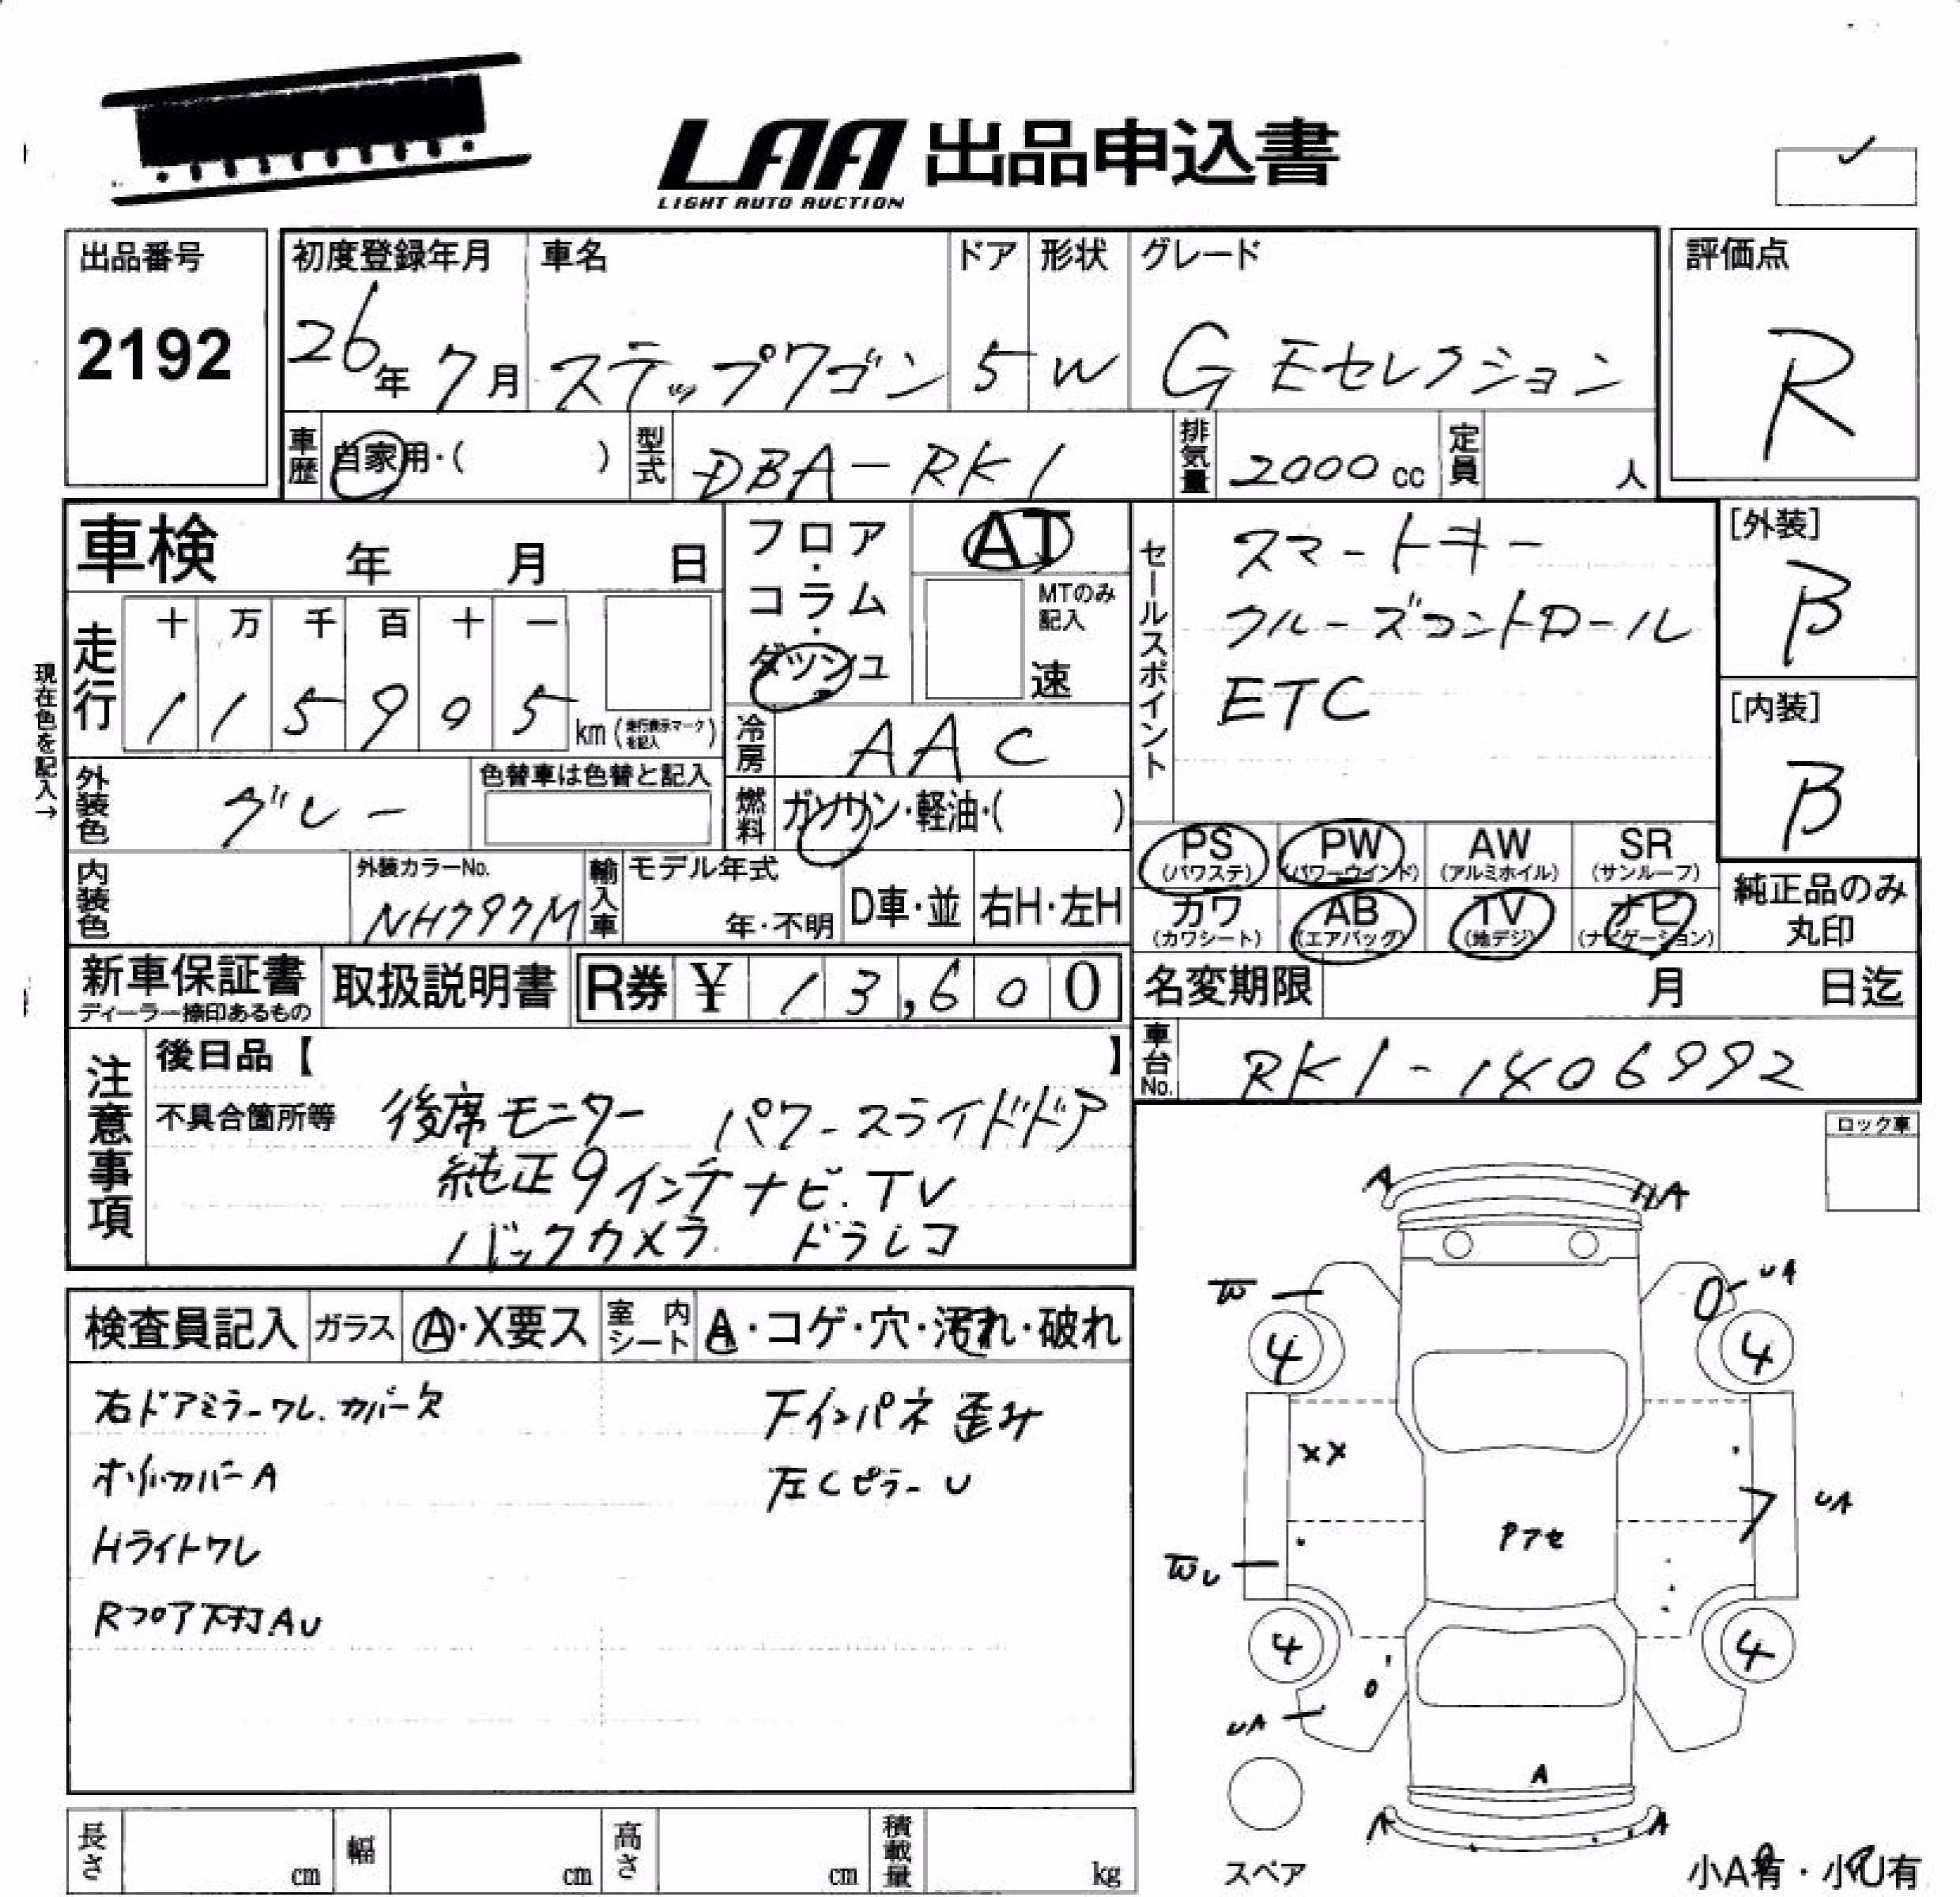 LAA 出品申込書
LIGHT AUTO AUCTION
出品番号
2192
初度登録年月
26年 7月
車名
ステップワゴン
ドア
5
形状
W
グレード
G Eセレクション
評価点
R
車歴
自家用・( )
型式
DBA-RK1
排気量
2000 cc
定員
人
車検 年 月 日
走行
十 万 千 百 十 一
1 1 5 9 0 5 km (走行表示マークを記入)
現在色を記入→
外装色
グレー
色替車は色替と記入
内装色
外装カラーNo.
NH797M
輸入車
モデル年式
年・不明
D車・並
右H・左H
フロア・コラム・ダッシュ
AT
MTのみ記入
速
冷房
AAC
燃料
ガソリン・軽油・( )
セールスポイント
スマートキー
クルーズコントロール
ETC
[外装]
B
[内装]
B
PS (パワステ)
PW (パワーウインド)
AW (アルミホイル)
SR (サンルーフ)
カワ (カワシート)
AB (エアバッグ)
TV (地デジ)
ナビ (ナビゲーション)
純正品のみ丸印
新車保証書
ディーラー捺印あるもの
取扱説明書
R券 ¥ 13,600
名変期限 月 日迄
車台No.
RK1-1406992
注意事項
後日品【 】
不具合箇所等
後席モニター パワースライドドア
純正9インチナビ.TV
バックカメラ ドラレコ
ロック車
検査員記入
ガラス
A・X要ス
室内シート
A・コゲ・穴・汚れ・破れ
右ドアミラーワレ.カバー欠
下インパネ 歪み
左Cピラー U
Hライトワレ
Rフロア下打AU
A
A
W
UA
4
4
XX
UA
Pアセ
WU
4
4
UA
A
A
A
スペア
小A有・小U有
長さ cm
幅 cm
高さ cm
積載量 kg